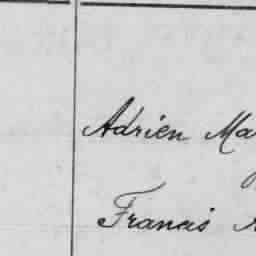 Adrien Ma
Francis